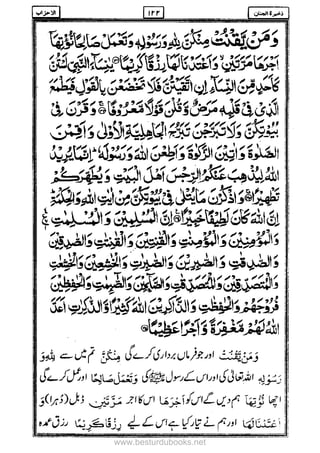 ذخيرة الجنان ۱۲۲ الاحزاب
وَمَنْ يَّقْنُتْ مِنْكُنَّ لِلّٰهِ وَرَسُوْلِهٖ وَتَعْمَلْ صَالِحًا نُّؤْتِهَآ
اَجْرَهَا مَرَّتَيْنِ وَاَعْتَدْنَا لَهَا رِزْقًا كَرِيْمًا يٰنِسَآءَ النَّبِيِّ لَسْتُنَّ
كَاَحَدٍ مِّنَ النِّسَآءِ اِنِ اتَّقَيْتُنَّ فَلَا تَخْضَعْنَ بِالْقَوْلِ فَيَطْمَعَ
الَّذِيْ فِيْ قَلْبِهٖ مَرَضٌ وَّقُلْنَ قَوْلًا مَّعْرُوْفًا وَقَرْنَ فِيْ
بُيُوْتِكُنَّ وَلَا تَبَرَّجْنَ تَبَرُّجَ الْجَاهِلِيَّةِ الْاُوْلٰى وَاَقِمْنَ
الصَّلٰوةَ وَاٰتِيْنَ الزَّكٰوةَ وَاَطِعْنَ اللّٰهَ وَرَسُوْلَهٗ اِنَّمَا يُرِيْدُ
اللّٰهُ لِيُذْهِبَ عَنْكُمُ الرِّجْسَ اَهْلَ الْبَيْتِ وَيُطَهِّرَكُمْ
تَطْهِيْرًا وَاذْكُرْنَ مَا يُتْلٰى فِيْ بُيُوْتِكُنَّ مِنْ اٰيٰتِ اللّٰهِ وَالْحِكْمَةِ
اِنَّ اللّٰهَ كَانَ لَطِيْفًا خَبِيْرًا اِنَّ الْمُسْلِمِيْنَ وَالْمُسْلِمٰتِ
وَالْمُؤْمِنِيْنَ وَالْمُؤْمِنٰتِ وَالْقٰنِتِيْنَ وَالْقٰنِتٰتِ وَالصّٰدِقِيْنَ
وَالصّٰدِقٰتِ وَالصّٰبِرِيْنَ وَالصّٰبِرٰتِ وَالْخٰشِعِيْنَ وَالْخٰشِعٰتِ
وَالْمُتَصَدِّقِيْنَ وَالْمُتَصَدِّقٰتِ وَالصَّآئِمِيْنَ وَالصّٰٓئِمٰتِ وَالْحٰفِظِيْنَ
فُرُوْجَهُمْ وَالْحٰفِظٰتِ وَالذّٰكِرِيْنَ اللّٰهَ كَثِيْرًا وَّالذّٰكِرٰتِ اَعَدَّ
اللّٰهُ لَهُمْ مَّغْفِرَةً وَّاَجْرًا عَظِيْمًا
وَمَنْ يَّقْنُتْ اور جو فرماں برداری کرے گی مِنْكُنَّ تم میں سے لِلّٰهِ وَ
رَسُوْلِهٖ اللہ تعالیٰ کی اور اس کے رسول ﷺ کی وَتَعْمَلْ صَالِحًا اور عمل کرے گی
اچھا نُّؤْتِهَآ ہم دیں گے اس کو اَجْرَهَا اس کا اجر مَرَّتَيْنِ ڈبل (دُہرا) وَ
اَعْتَدْنَا لَهَا اور ہم نے تیار کیا ہے اس کے لیے رِزْقًا كَرِيْمًا رزق عمدہ
www.besturdubooks.net